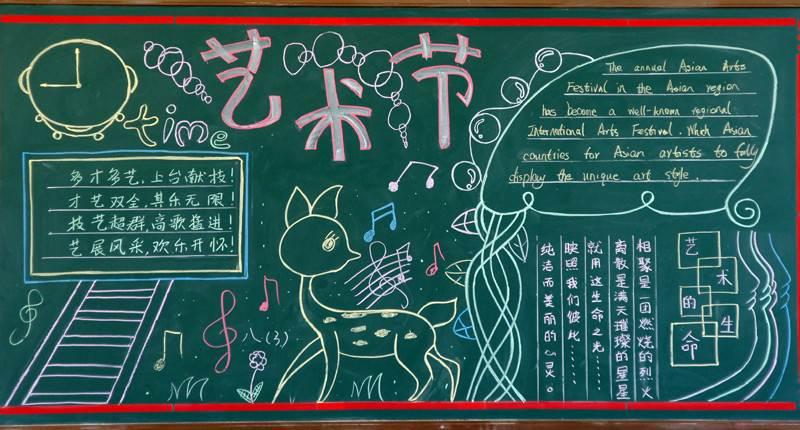 艺术节
time
多才多艺，上台献技！
才艺双全，其乐无限！
技艺超群，高歌猛进！
艺展风采，欢乐开怀！
八（3）
The annual Asian Arts
Festival in the Asian region
has become a well-known regional
International Arts Festival. Which Asian
countries for Asian artists to fully
display the unique art style.
艺术的生命
相聚是一团燃烧的烈火
离散是满天璀璨的星星
就用这生命之光……
映照我们彼此……
纯洁而美丽的心灵。